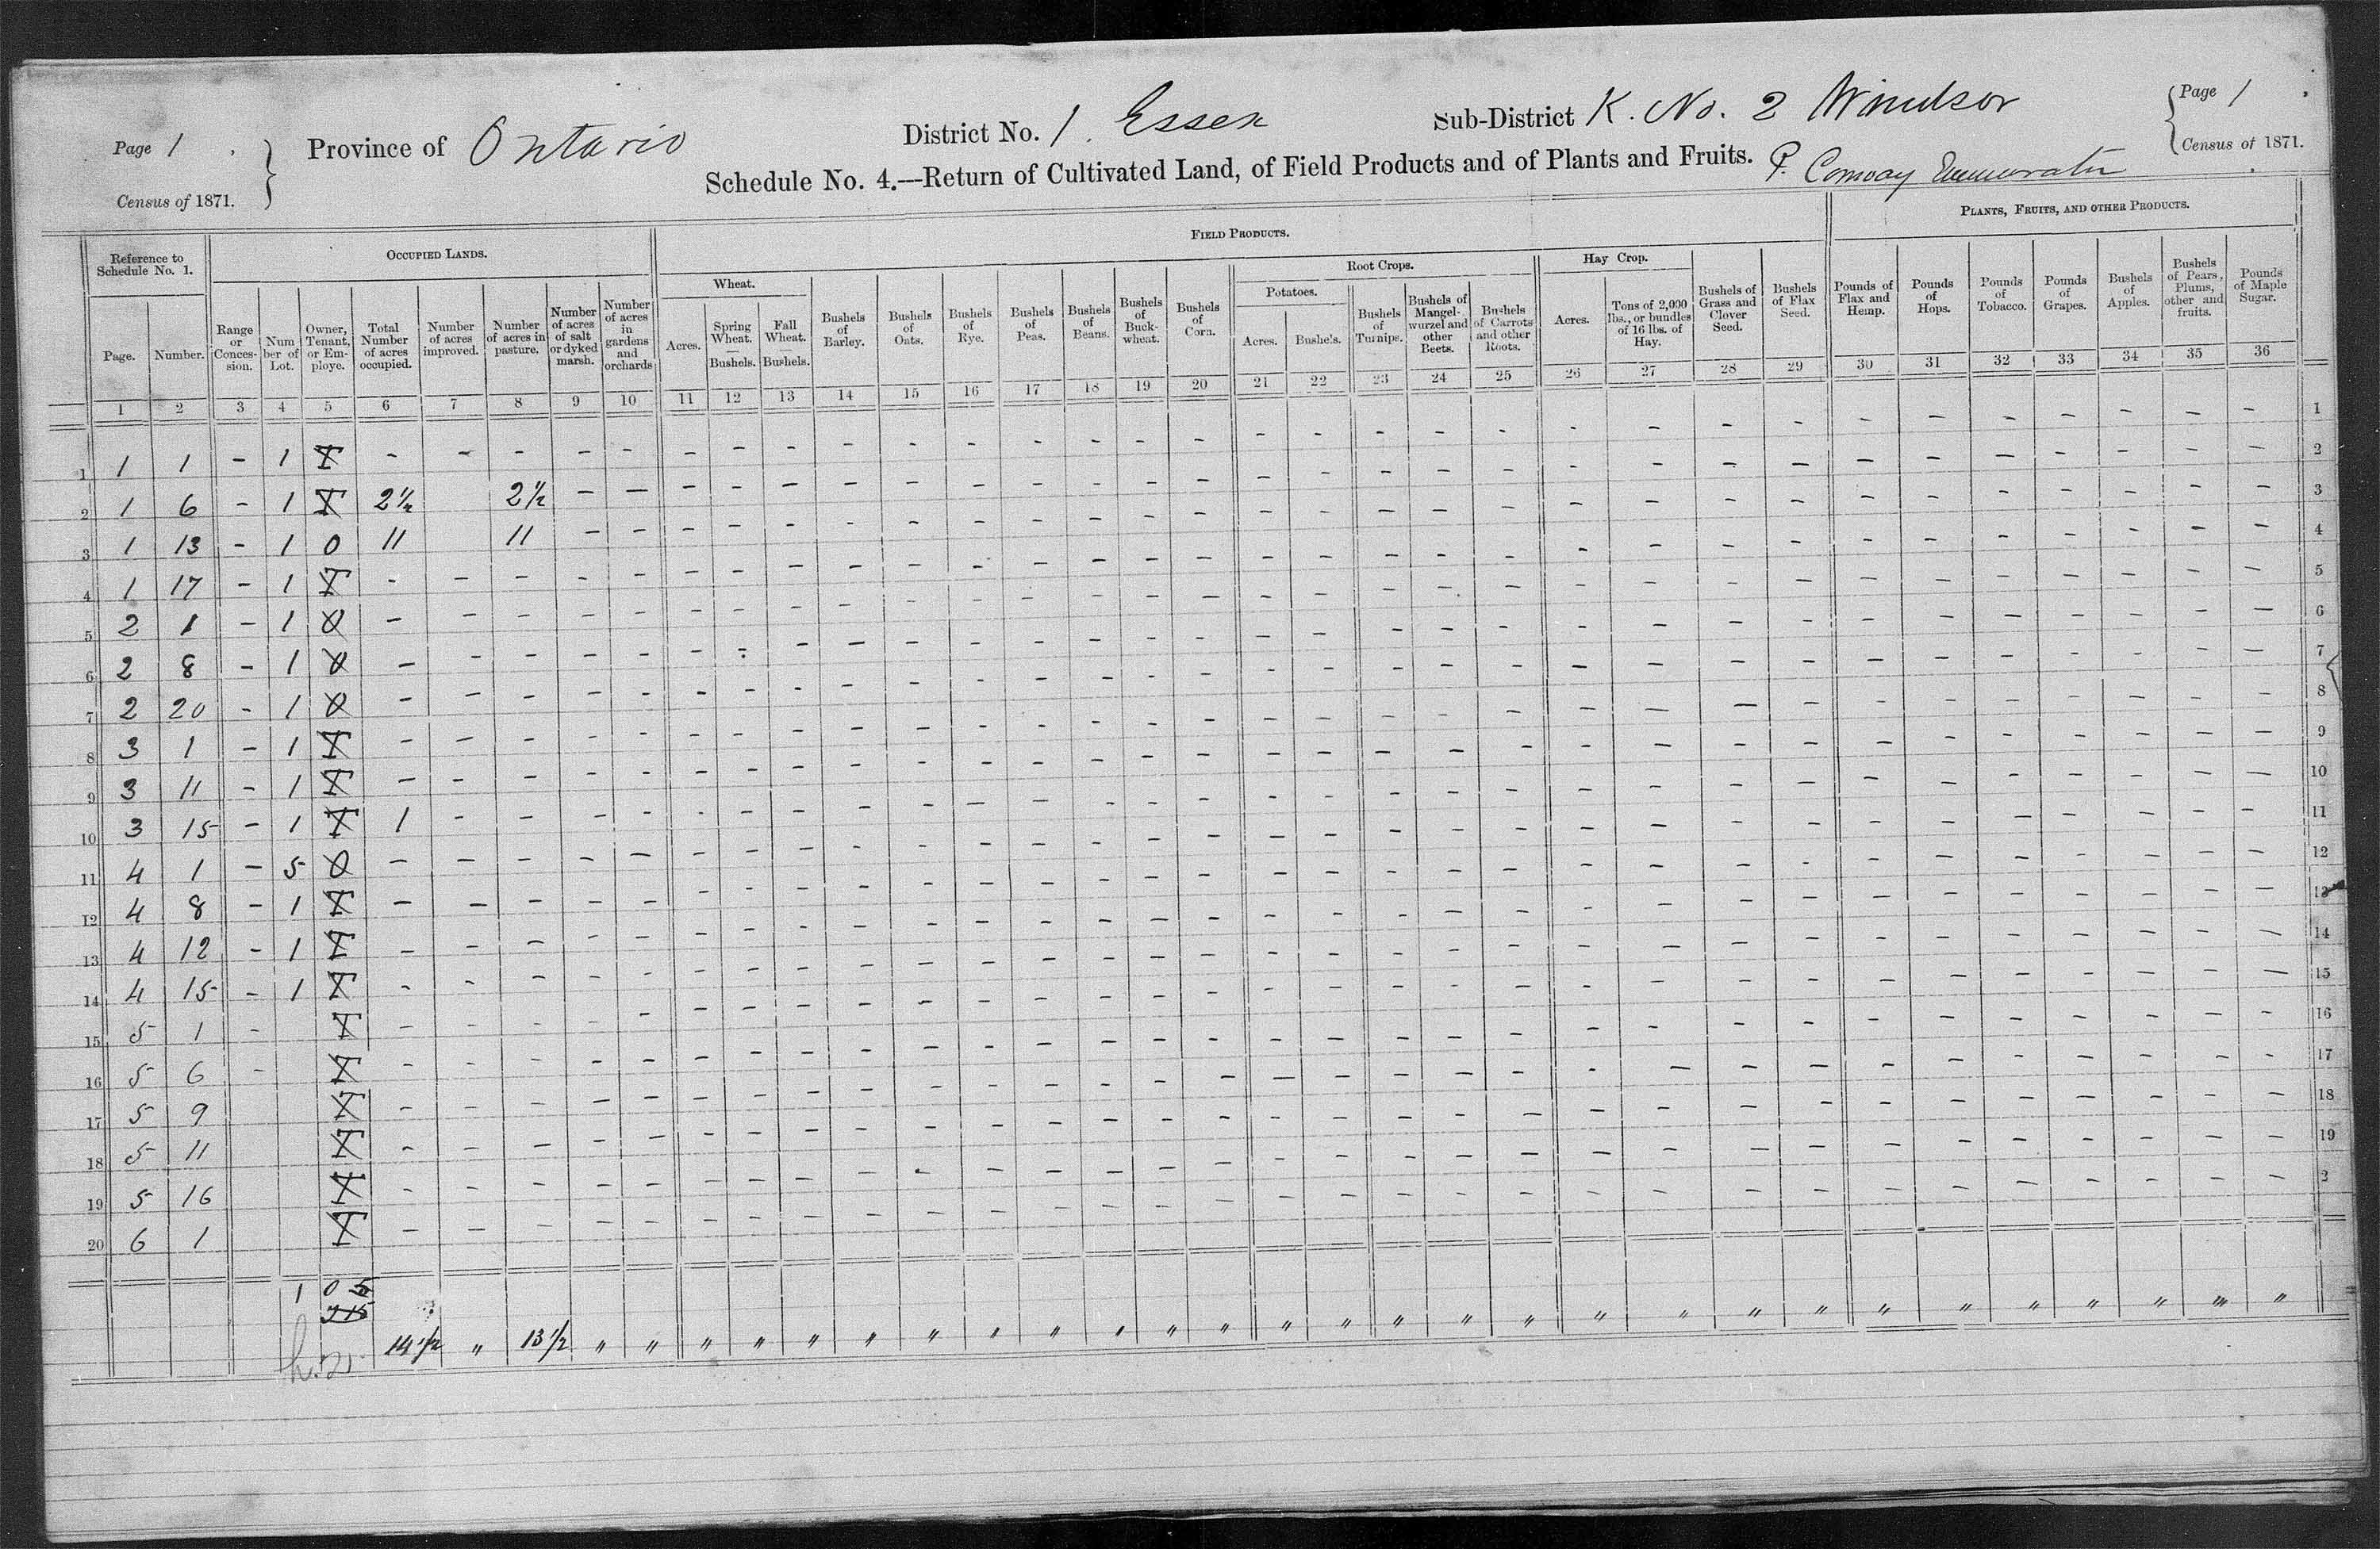 Page 1 Province of Ontario District No. 1. Essex Sub-District K. No. 2 Windsor Page 1
Census of 1871. Schedule No. 4.—Return of Cultivated Land, of Field Products and of Plants and Fruits. P. Conway Enumerator Census of 1871.
Reference to Schedule No. 1. OCCUPIED LANDS. FIELD PRODUCTS. PLANTS, FRUITS, AND OTHER PRODUCTS.
Wheat. Root Crops. Hay Crop.
Potatoes.
Page. Number. Range or Conces-sion. Num ber of Lot. Owner, Tenant, or Em-ploye. Total Number of acres occupied. Number of acres improved. Number of acres in pasture. Number of acres of salt or dyked marsh. Number of acres in gardens and orchards Acres. Spring Wheat. — Bushels. Fall Wheat. Bushels. Bushels of Barley. Bushels of Oats. Bushels of Rye. Bushels of Peas. Bushels of Beans. Bushels of Buck-wheat. Bushels of Corn. Acres. Bushels. Bushels of Turnips. Bushels of Mangel-wurzel and other Beets. Bushels of Carrots and other Roots. Acres. Tons of 2,000 lbs., or bundles of 16 lbs. of Hay. Bushels of Grass and Clover Seed. Bushels of Flax Seed. Pounds of Flax and Hemp. Pounds of Hops. Pounds of Tobacco. Pounds of Grapes. Bushels of Apples. Bushels of Pears, Plums, other and fruits. Pounds of Maple Sugar.
1 2 3 4 5 6 7 8 9 10 11 12 13 14 15 16 17 18 19 20 21 22 23 24 25 26 27 28 29 30 31 32 33 34 35 36
1 1 1 - 1 T - - - - - - - - - - - - - - - - - - - - - - - - - - - - - - - 1
2 1 6 - 1 T 2½ 2½ - - - - - - - - - - - - - - - - - - - - - - - - - - - - 2
3 1 13 - 1 O 11 11 - - - - - - - - - - - - - - - - - - - - - - - - - - - - 3
4 1 17 - 1 T - - - - - - - - - - - - - - - - - - - - - - - - - - - - - - - 4
5 2 1 - 1 O - - - - - - - - - - - - - - - - - - - - - - - - - - - - - - - 5
6 2 8 - 1 O - - - - - - - - - - - - - - - - - - - - - - - - - - - - - - - 6
7 2 20 - 1 O - - - - - - - - - - - - - - - - - - - - - - - - - - - - - - - 7
8 3 1 - 1 T - - - - - - - - - - - - - - - - - - - - - - - - - - - - - - - 8
9 3 11 - 1 T - - - - - - - - - - - - - - - - - - - - - - - - - - - - - - - 9
10 3 15 - 1 T 1 - - - - - - - - - - - - - - - - - - - - - - - - - - - - - - 10
11 4 1 - 5 O - - - - - - - - - - - - - - - - - - - - - - - - - - - - - - - 11
12 4 8 - 1 T - - - - - - - - - - - - - - - - - - - - - - - - - - - - - - - 12
13 4 12 - 1 T - - - - - - - - - - - - - - - - - - - - - - - - - - - - - - - 13
14 4 15 - 1 T - - - - - - - - - - - - - - - - - - - - - - - - - - - - - - - 14
15 5 1 - T - - - - - - - - - - - - - - - - - - - - - - - - - - - - - - - 15
16 5 6 - T - - - - - - - - - - - - - - - - - - - - - - - - - - - - - - - 16
17 5 9 T - - - - - - - - - - - - - - - - - - - - - - - - - - - - - - - 17
18 5 11 T - - - - - - - - - - - - - - - - - - - - - - - - - - - - - - - 18
19 5 16 T - - - - - - - - - - - - - - - - - - - - - - - - - - - - - - - 19
20 6 1 T - - - - - - - - - - - - - - - - - - - - - - - - - - - - - - - 2
1 O 5
T 15
14½ " 13½ " " " " " " " " " " " " " " " " " " " " " " " " " " " "